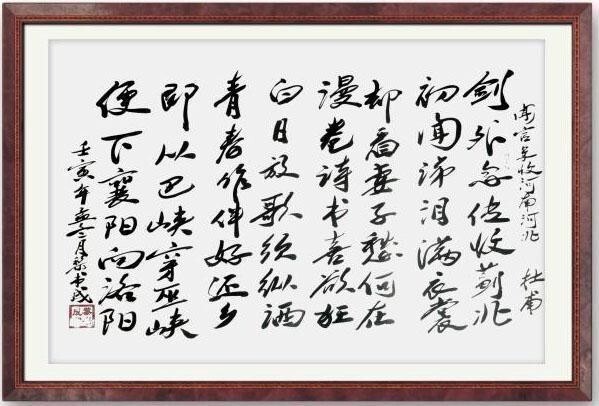 闻官军收河南河北 杜甫
剑外忽传收蓟北
初闻涕泪满衣裳
却看妻子愁何在
漫卷诗书喜欲狂
白日放歌须纵酒
青春作伴好还乡
即从巴峡穿巫峡
便下襄阳向洛阳
壬寅年孟冬月